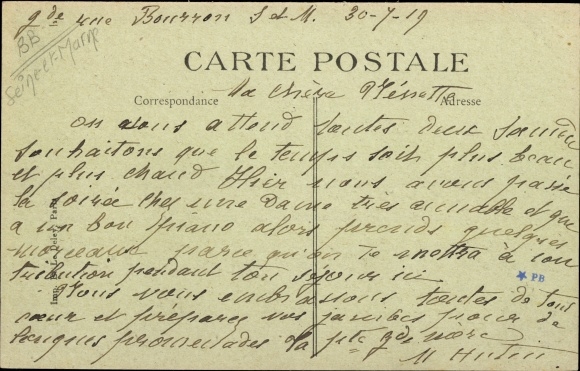 gde rue Bourron S et M. 30-7-19
BB
Seine-et-Marne
CARTE POSTALE
Correspondance
Adresse
Ma chère
on vous attend toutes deux samedi
souhaitons que le temps soit plus beau
et plus chaud Hier nous avons passé
la soirée chez une Dame très aimable et qui
a un bon piano alors prends quelques
morceaux parce qu'on te mettra à con
tribution pendant ton séjour ici
Nous vous embrassons toutes de tout
cœur et préparez vos jambes pour de
longues promenades la pte gde mère
M Hutin
PB
Paris